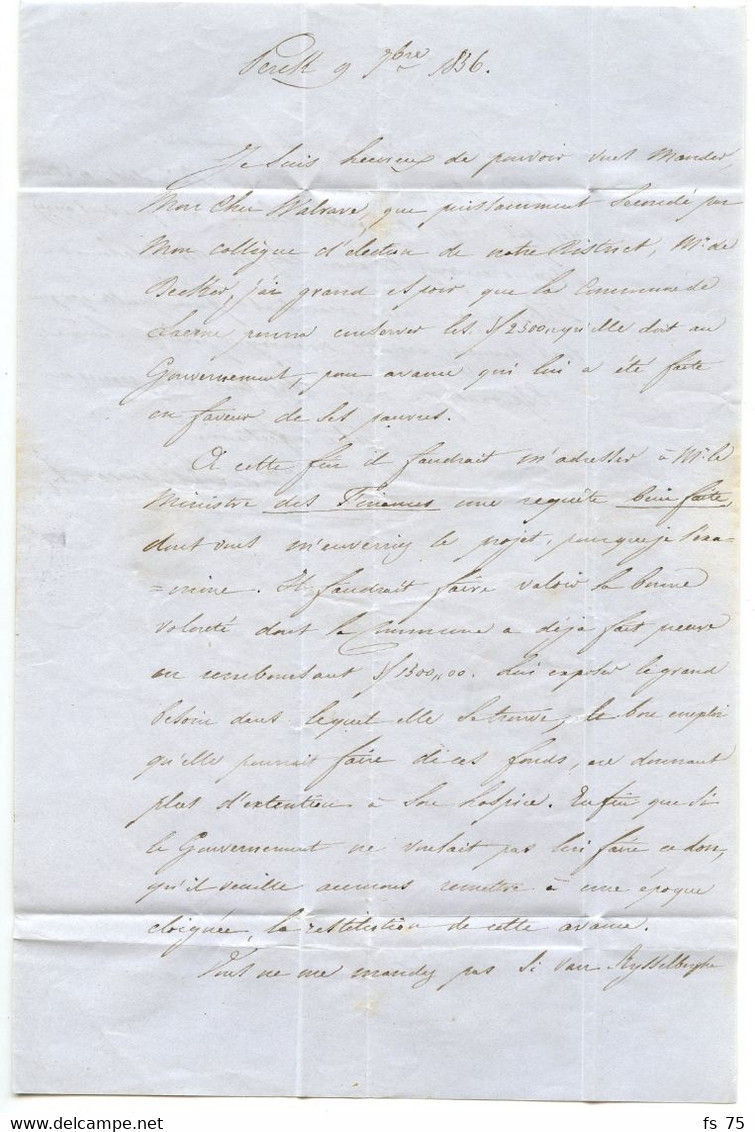 Perck 9 7bre 1856.
Je suis heureux de pouvoir vous mander,
Mon cher Walrave, que puissamment secondé par
Mon collègue d'élection de notre District, Mr. de
Decker, j'ai grand espoir que la Commune de
Laerne pourra conserver les f/2500 qu'elle doit au
Gouvernement, pour avance qui lui a été faite
en faveur de ses pauvres.
A cette fin il faudrait m'adresser à Mr. le
Ministre des Finances une requête bien faite,
dont vous m'enverriez le projet, pour que je l'exa=
=mine. Il faudrait faire valoir la bonne
volonté dont la Commune a déjà fait preuve
en remboursant f/1300,,00. Lui exposer le grand
besoin dans lequel elle se trouve, le bon emploi
qu'elle pourrait faire de ces fonds, en donnant
plus d'extention à son hospice. Enfin que si
le Gouvernement ne voulait pas lui faire ce don,
qu'il veuille au moins remettre à une époque
éloignée, la restitution de cette avance.
Vous ne me mandez pas si van Rysselberghe
fs_75